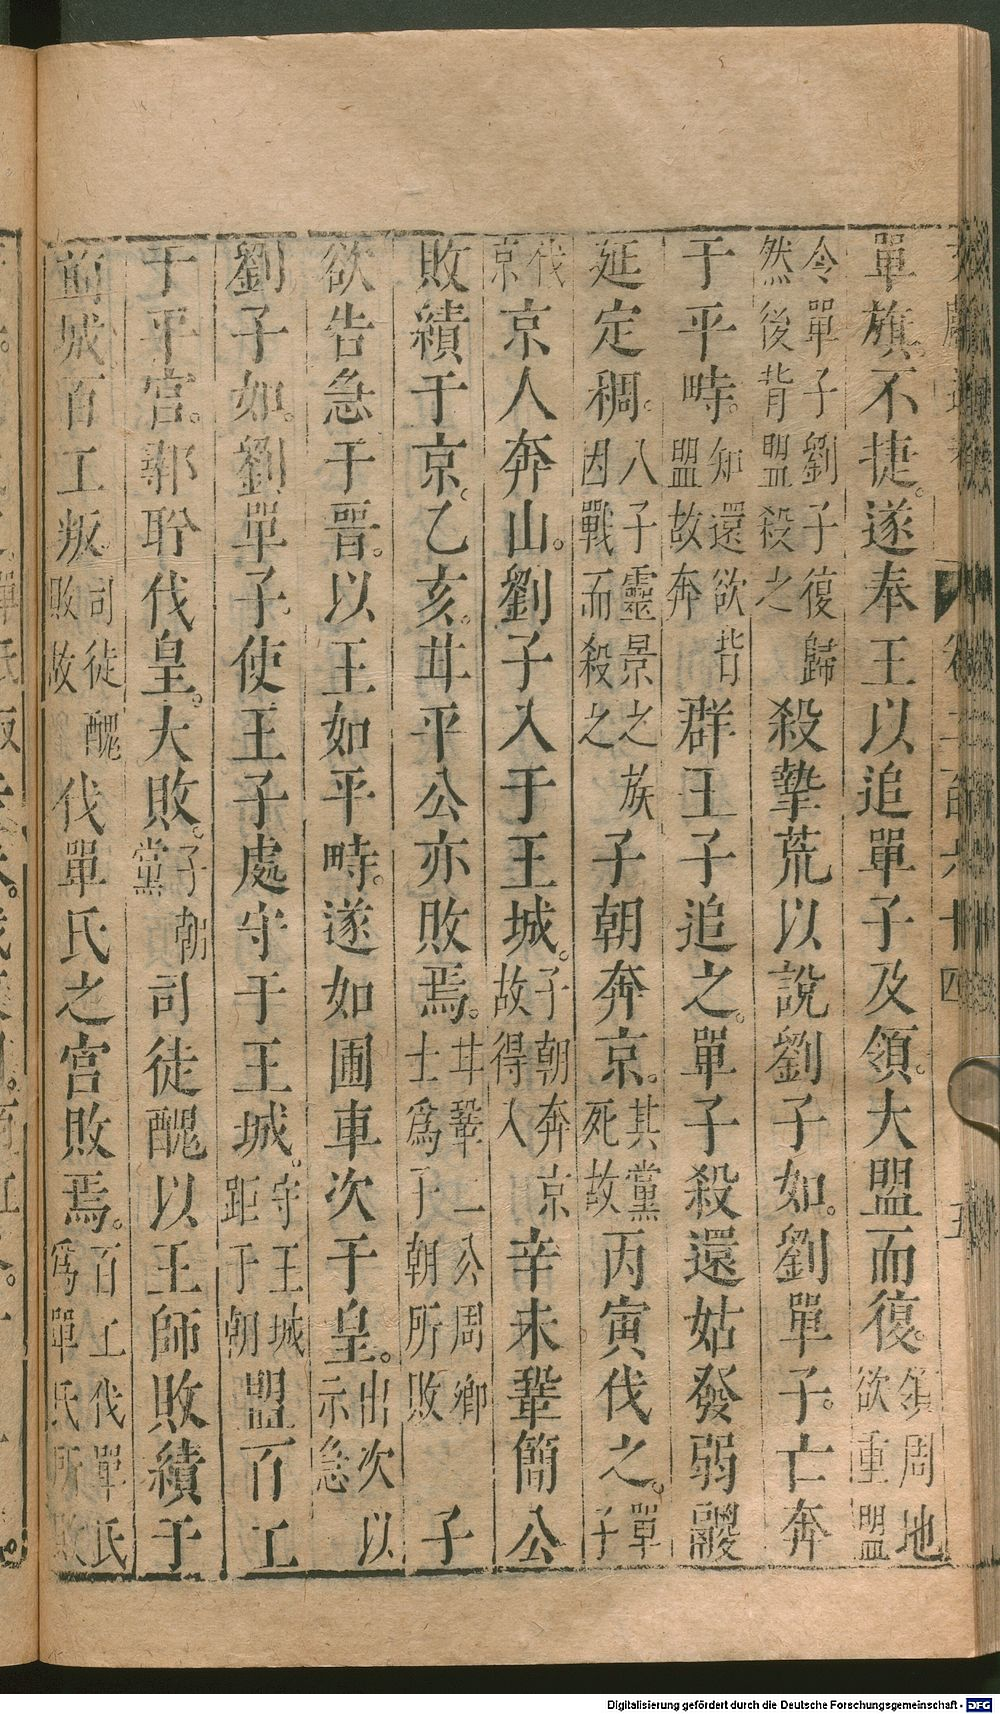 單旗。不捷。遂奉王以追單子及領。大盟而復。領周地欲重盟
令單子劉子復歸然後背盟殺之殺摯荒以說劉子如。劉單子。亡奔
于平畤。知還欲背盟故奔群王子追之。單子殺還姑發弱鬷
延定稠。八子靈景之族因戰而殺之子朝奔京。其黨死故丙寅伐之。單子
伐京京人奔山。劉子入于王城。子朝奔京故得入辛未鞏簡公
敗績于京。乙亥。甘平公亦敗焉。甘鞏二公周卿士爲子朝所敗子
欲告急于晉。以王如平畤。遂如圃車次于皇。出次以示急
劉子如。劉單子。使王子處守于王城。守王城距子朝盟百工
于平宮。鄩肹伐皇。大敗。子朝黨司徒醜以王師敗績于
前城百工叛。司徒醜敗故伐單氏之宮敗焉。百工伐單氏爲單氏所敗
卷二百六十四
五
Digitalisierung gefördert durch die Deutsche Forschungsgemeinschaft - DFG